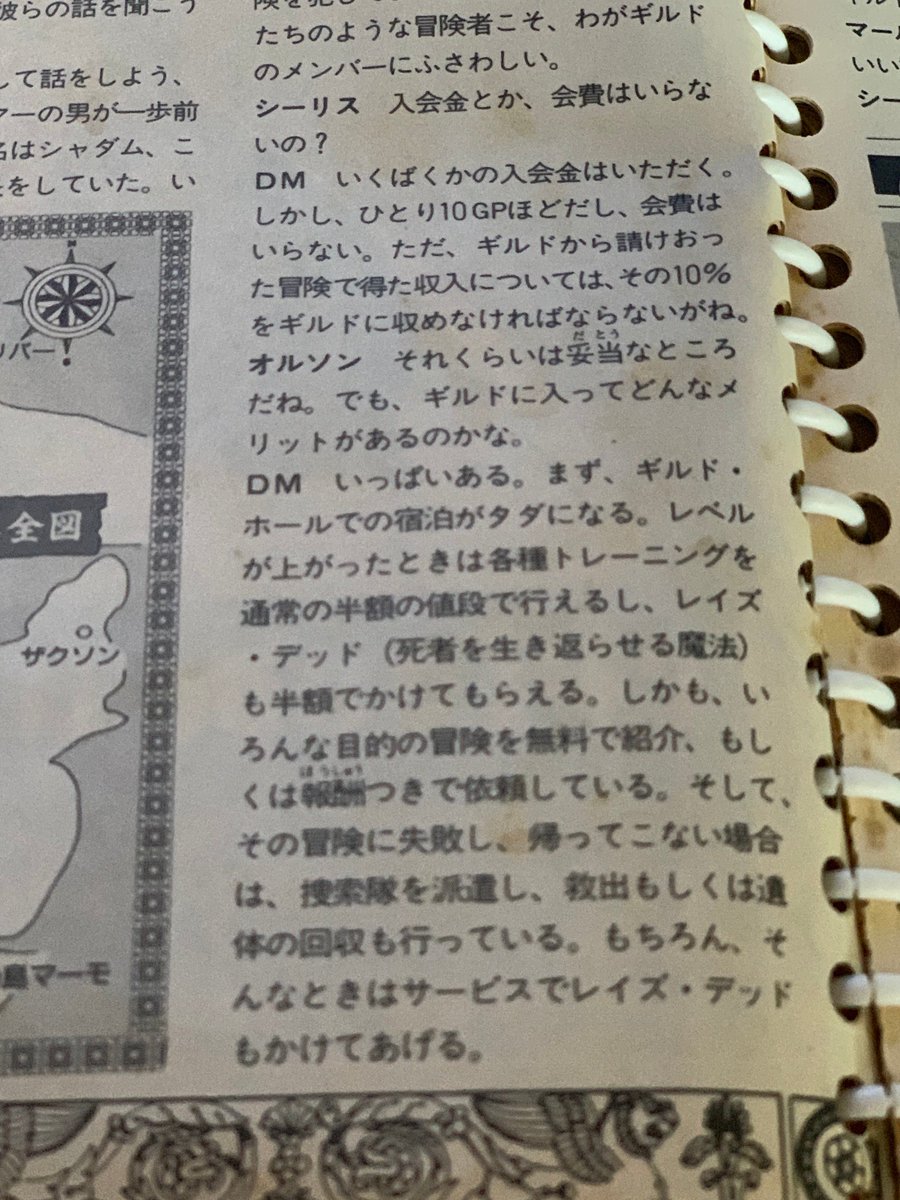 彼らの話を聞こう
して話をしよう、
ァーの男が一歩前
名はシャダム、こ
をしていた。い
リバー
全図
ザクソン
島マーモ
たちのような冒険者こそ、わがギルド
のメンバーにふさわしい。
シーリス　入会金とか、会費はいらな
いの？
DM　いくばくかの入会金はいただく。
しかし、ひとり10GPほどだし、会費は
いらない。ただ、ギルドから請けおっ
た冒険で得た収入については、その10％
をギルドに収めなければならないがね。
オルソン　それくらいは妥当なところ
だね。でも、ギルドに入ってどんなメ
リットがあるのかな。
DM　いっぱいある。まず、ギルド・
ホールでの宿泊がタダになる。レベル
が上がったときは各種トレーニングを
通常の半額の値段で行えるし、レイズ
・デッド（死者を生き返らせる魔法）
も半額でかけてもらえる。しかも、い
ろんな目的の冒険を無料で紹介、もし
くは報酬つきで依頼している。そして、
その冒険に失敗し、帰ってこない場合
は、捜索隊を派遣し、救出もしくは遺
体の回収も行っている。もちろん、そ
んなときはサービスでレイズ・デッド
もかけてあげる。
マール
いい
シー